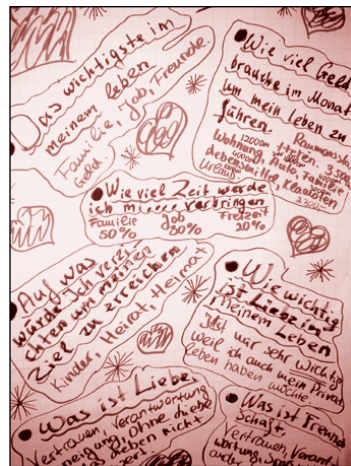 Das wichtigste im
meinem leben
Familie, Job, Freunde.
Geld.
Wie viel Geld
brauche im Monat
um mein leben zu
führen.
Wohnung, Auto, Familie
Lebensmittel, Klamotten
Urlaub
Wie viel Zeit werde
ich verbringen
Familie Job Freizeit
50% 30% 20%
Auf was
würde ich verzi
chten um meinen
Ziel zu erreichen
Kinder, Heirat, Heimat
Wie wichtig
ist Liebe im
meinem Leben
Ist mir sehr wichtig
weil ich auch mein Privat
leben haben möchte.
Was ist Liebe,
Vertrauen, Verantwortung
neigung, ohne diese
das leben nicht
Was ist Freund
schaft
Vertrauen, Verant
wortung